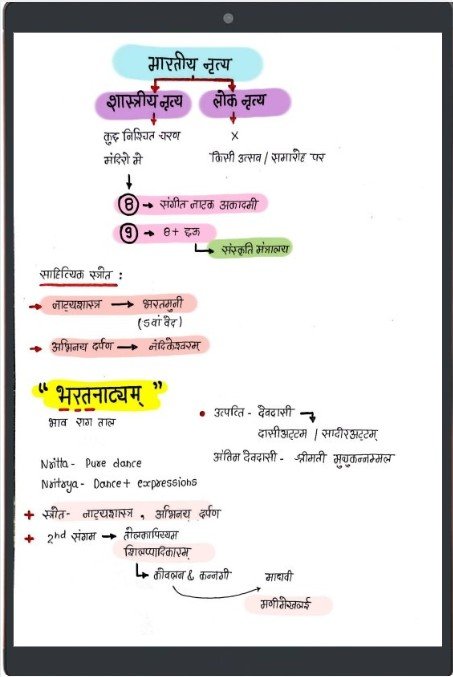 भारतीय नृत्य
शास्त्रीय नृत्य लोक नृत्य
कुछ निश्चित चरण ×
मंदिरो मे किसी उत्सव / समारोह पर
8 → संगीत नाटक अकादमी
9 → 8 + छऊ
संस्कृति मंत्रालय
साहित्यिक स्त्रोत :
→ नाट्यशास्त्र → भरतमुनी
(5वां वेद)
→ अभिनय दर्पण → नंदिकेश्वरम्
“ भरतनाट्यम् ”
भाव राग ताल
• उत्पत्ति - देवदासी
दासीअट्टम / सादीरअट्टम्
अंतिम देवदासी - श्रीमती मुथुकन्नम्मल
Nritta - Pure dance
Nritya - Dance + expressions
+ स्त्रोत - नाट्यशास्त्र , अभिनय दर्पण
+ 2nd संगम → तोलकापियम
शिलप्पादिकारम्
कोवलन & कन्नगी माधवी
मणीमेखलई